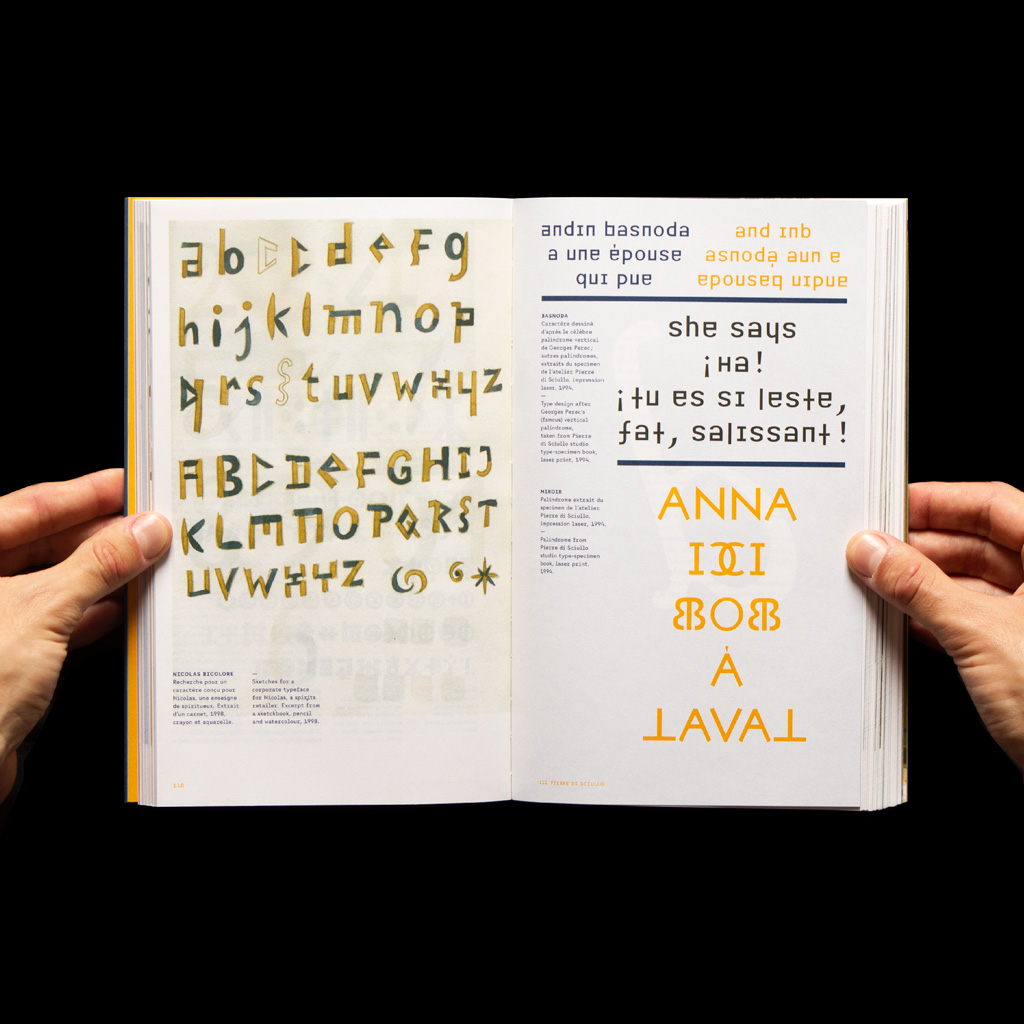 a b c c d e f g
h i j k l m n o p
q r s s t u v w x y z
A B C D e F G H I J
K L M N O P Q R S T
U V W X Y Z
NICOLAS BICOLORE
Recherche pour un
caractère conçu pour
Nicolas, une enseigne
de spiritueux. Extrait
d'un carnet, 1998,
crayon et aquarelle.
—
Sketches for a
corporate typeface
for Nicolas, a spirits
retailer. Excerpt from
a sketchbook, pencil
and watercolour, 1998.
110
andin basnoda
a une épouse
qui pue
and inb
asnoda aun a
BASNODA
Caractère dessiné
d'après le célèbre
palindrome vertical
de Georges Perec;
autres palindromes,
extraits du specimen
de l'atelier Pierre
di Sciullo, impression
laser, 1994.
—
Type design after
Georges Perec's
(famous) vertical
palindrome,
taken from Pierre
di Sciullo studio
type-specimen book,
laser print, 1994.
she says
¡Ha!
¡tu es si leste,
fat, salissant !
MIROIR
Palindrome extrait du
specimen de l'atelier
Pierre di Sciullo,
impression laser, 1994.
—
Palindrome from
Pierre di Sciullo
studio type-specimen
book, laser print,
1994.
ANNA
ICI
BOB
À
LAVAL
111 PIERRE DI SCIULLO